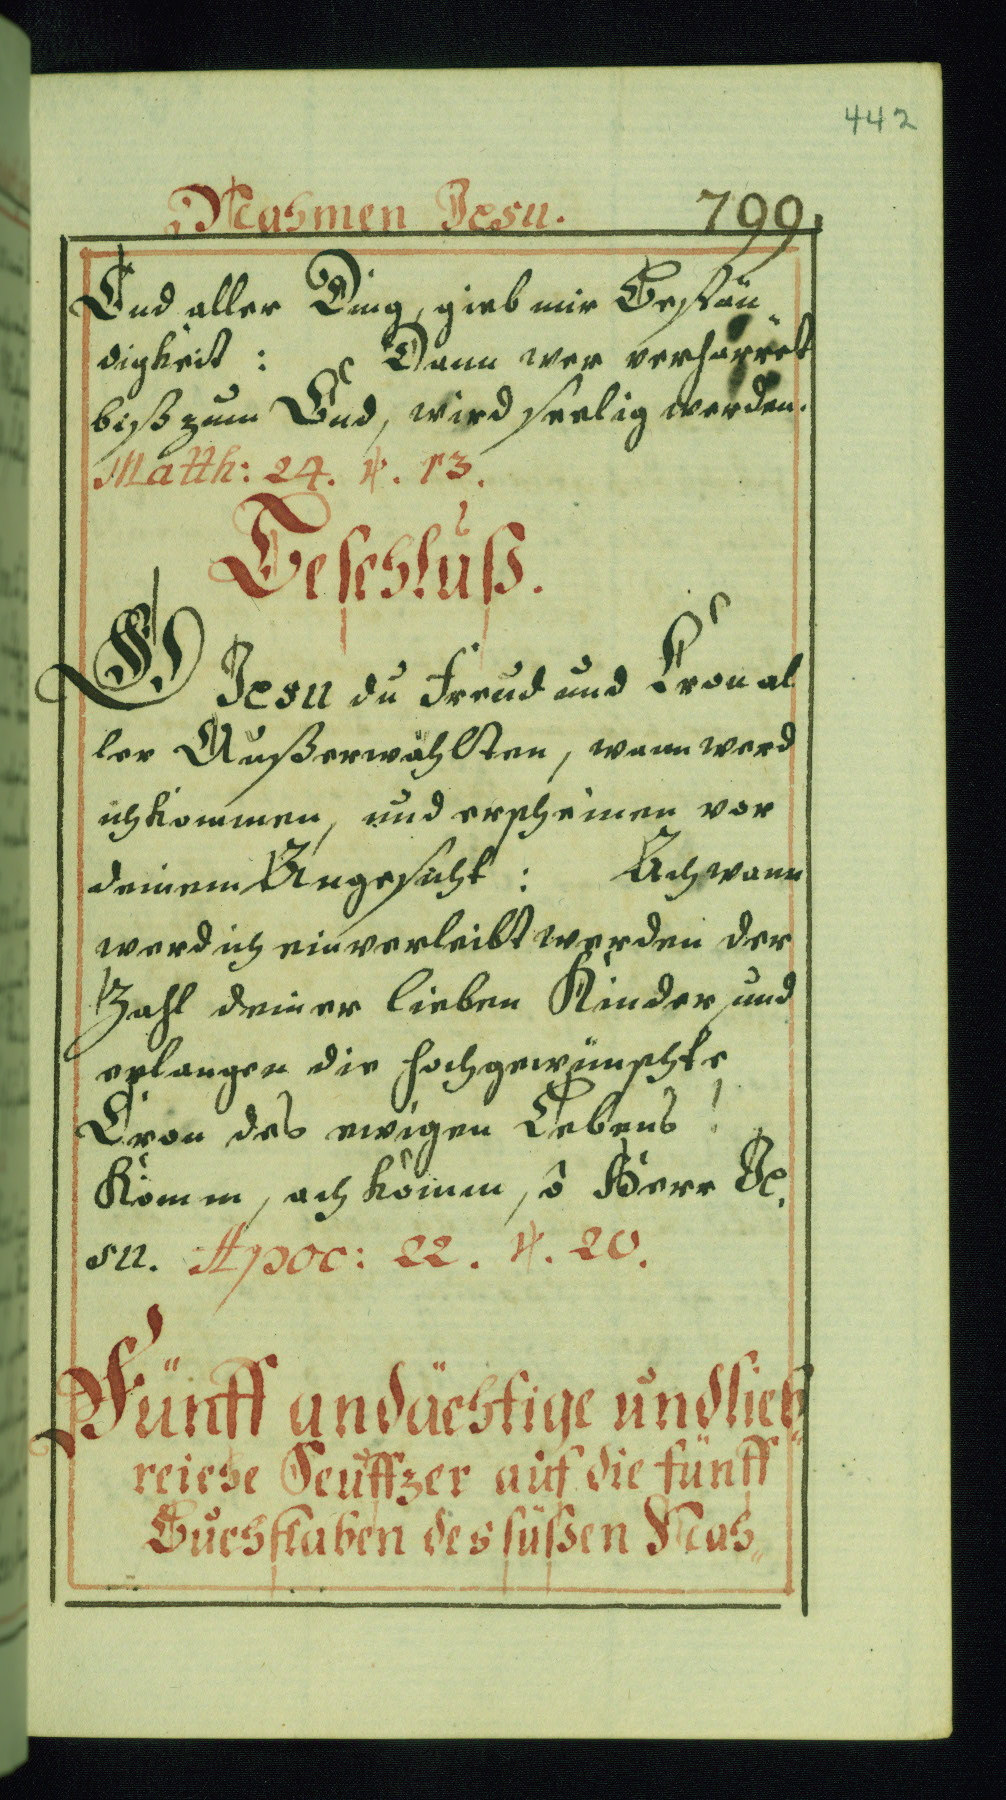 442
Nahmen Jesu. 799.
End aller Ding, gieb mir Bestän„
digkeit: Dann wer verharret
biß zum End, wird seelig werden.
Matth: 24. ℣. 13.
Beschluß.
O Jesu du Freud und Cron al
ler Außerwählten, wann werd
ich kommen, und erscheinen vor
deinem Angesicht: Ach wann
werd ich einverleibt werden der
Zahl deiner lieben Kinder, und
erlangen die hochgewünschte
Cron des ewigen Lebens!
Komm, ach komm, ô Herr Je„
su. Apoc: 22. ℣. 20.
Fünff andächtige und lieb„
reiche Seuffzer auf die fünff
Buchstaben des süßen Nah„